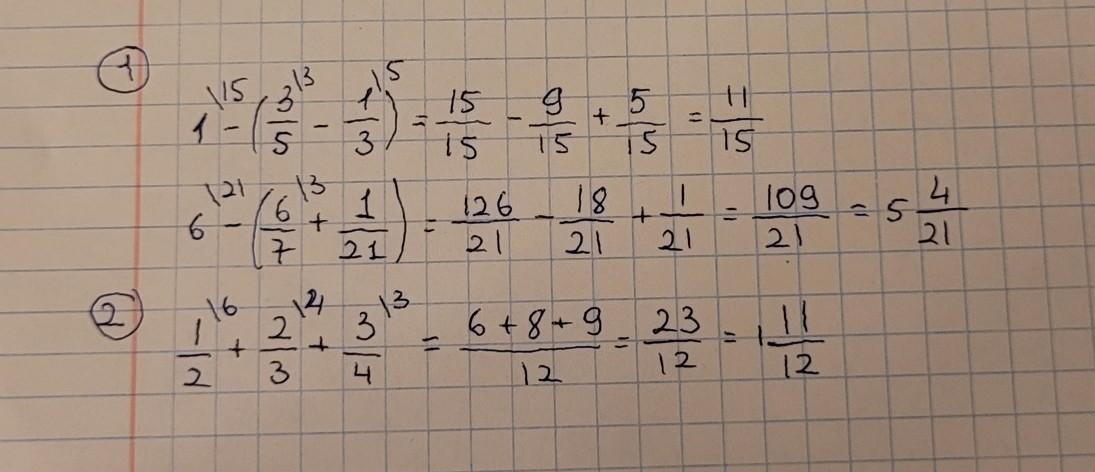 1
1\15 - (3/5\3 - 1/3\5) = 15/15 - 9/15 + 5/15 = 11/15
6\21 - (6/7\3 + 1/21) = 126/21 - 18/21 + 1/21 = 109/21 = 5 4/21
2
1/2\6 + 2/3\4 + 3/4\3 = (6+8+9)/12 = 23/12 = 1 11/12